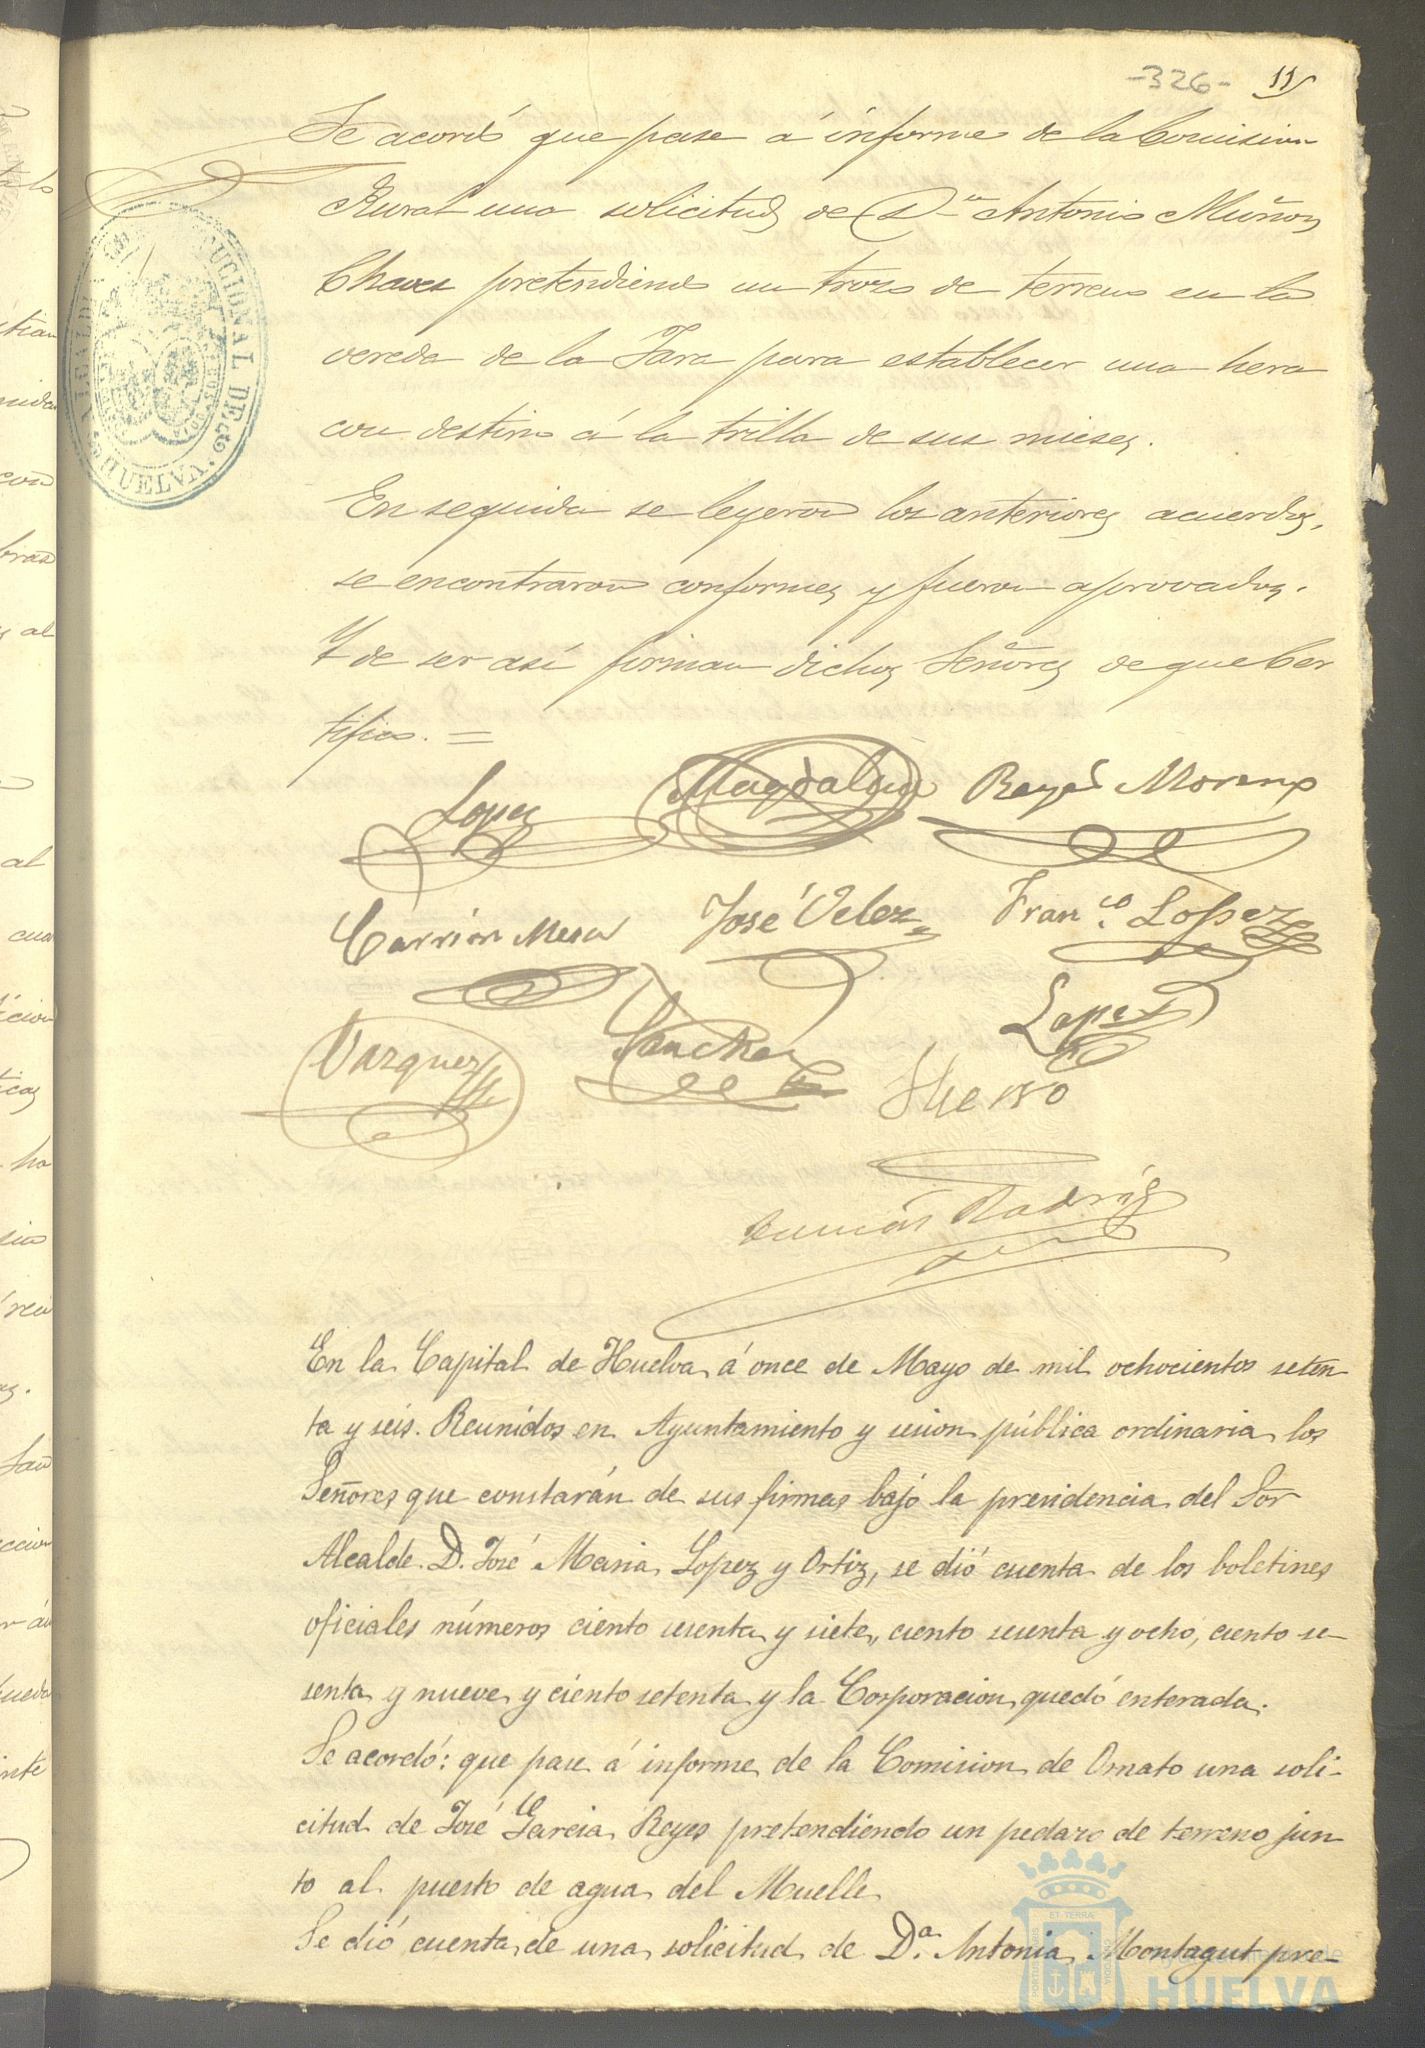 -326- 11
Se acordó que pase á informe de la Comision
Rural una solicitud de Dn Antonio Muñoz
Chaves pretendiendo un trozo de terreno en la
vereda de la Jara para establecer una hera
con destino á la trilla de sus mieses.
En seguida se leyeron los anteriores acuerdos,
se encontraron conformes y fueron aprovados.
Y de ser así firman dichos Señores de que Cer
tifico. =
Lopez Magdalena Reyes Moreno
Carrión Mesa José Velez Fran.co Lopez
Vazquez Sanchez Lopez
Hierro
Rodríg
En la Capital de Huelva á once de Mayo de mil ochocientos seten-
ta y seis. Reunidos en Ayuntamiento y sesion pública ordinaria los
Señores que constarán de sus firmas bajo la presidencia del Sor
Alcalde D. José Maria Lopez y Ortiz, se dió cuenta de los boletines
oficiales números ciento sesenta y siete, ciento sesenta y ocho, ciento se-
senta y nueve y ciento setenta y la Corporacion quedó enterada.
Se acordó: que pase á informe de la Comision de Ornato una soli-
citud de José Garcia Reyes pretendiendo un pedazo de terreno jun-
to al puesto de agua del Muelle
Se dió cuenta de una solicitud de D.a Antonia Montagut pre-
HUELVA